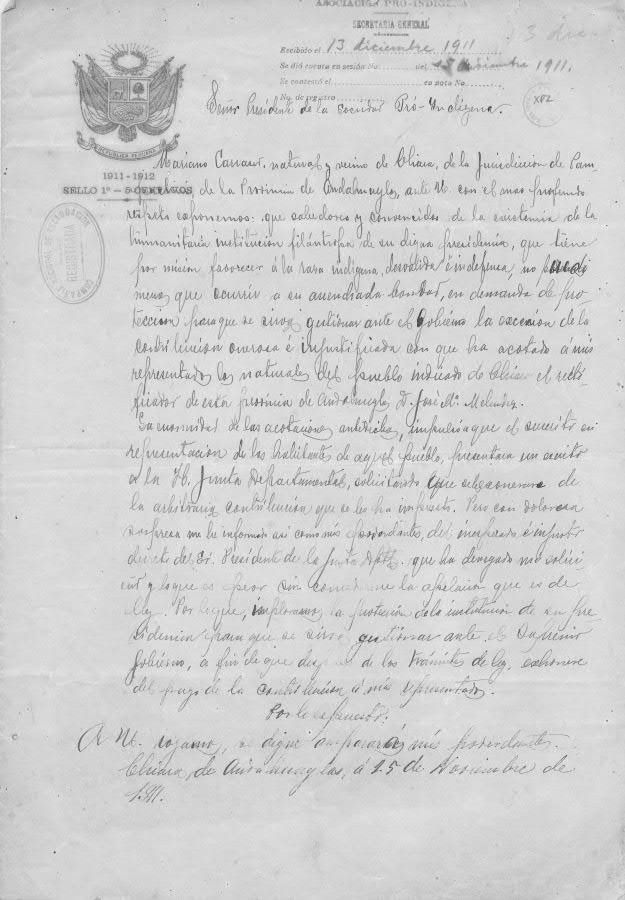 ASOCIACIÓN PRO-INDIGENA
SECRETARIA GENERAL
Recibido el 13 diciembre 1911
Se dió cuenta en sesión No. del 15 diciembre 1911.
Se contestó el en nota No.
No. de registro
REPUBLICA PERUANA
1911-1912
SELLO 1º - 5 CENTAVOS
Señor Presidente de la Sociedad Pró-Indígena.
Mariano natural y vecino de Chiara, de la Jurisdiccion de Pam-
de la Provincia de Andahuaylas, ante U. con el mas profundo
respeto exponemos: que sabedores y convencidos de la existencia de la
humanitaria institucion filántrofa de su digna presidencia, que tiene
por mision favorecer á la raza indígena, desvalida é indefensa, no
menos que ocurrir a su bondad, en demanda de pro-
teccion para que se sirva gestionar ante el Gobierno la de la
contribucion onerosa é injustificada con que ha acotado á mis
representados los naturales del pueblo indicado de Chiara el recti-
ficador de esta provincia de Andahuaylas D. José Mª. Melendez.
La enormidad de las acotaciones antedichas, que el suscrito en
representacion de los habitantes de aquel pueblo, presentara un escrito
a la H. Junta Departamental, solicitando que se les exonerara de
la arbitraria contribucion que se les ha impuesto. Pero con dolorosa
sorpresa me he informado asi como mis poderdantes, del inesperado é injusto
decreto del Sr. Presidente de la Junta Dptal. que ha denegado mi solici-
tud y lo que es peor sin la apelacion que es de
ley. Por lo que, imploramos la proteccion de la institucion de su pre-
sidencia para que se sirva gestionar ante el Supremo
Gobierno, a fin de que despues de los trámites de ley, exhonere
del pago de la contribucion á mis representados.
Por lo expuesto:
A U. rogamos, se digne amparar á mis poderdantes.
Chiara de Andahuaylas, á 25 de Noviembre de
1911.